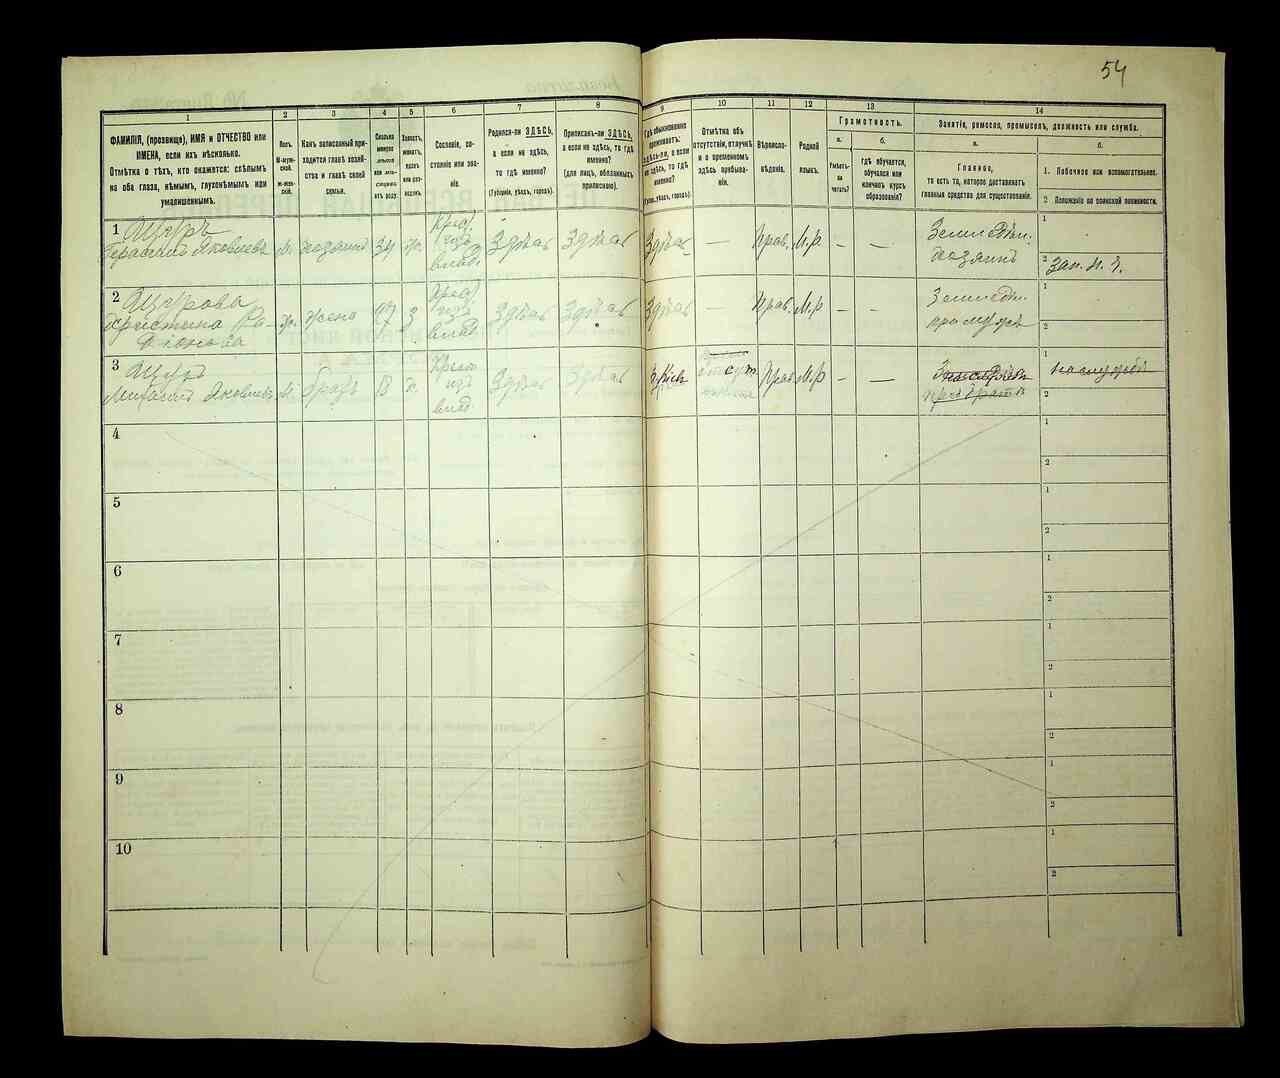 54
1
2
3
4
5
6
7
8
9
10
11
12
13
14
ФАМИЛІЯ, (прозвище), ИМЯ и ОТЧЕСТВО или
ИМЕНА, если ихъ нѣсколько.
Отмѣтка о тѣхъ, кто окажется: слѣпымъ
на оба глаза, нѣмымъ, глухонѣмымъ или
умалишеннымъ.
Полъ.
М-муж-
ской.
Ж-жен-
скій.
Какъ записанный при-
ходится главѣ хозяй-
ства и главѣ своей
семьи.
Сколько
минуло
лѣтъ
или мѣ-
сяцевъ
отъ роду
Холостъ,
женатъ,
вдовъ
или раз-
веденъ
Сословіе, со-
стояніе или зва-
ніе.
Родился-ли ЗДѢСЬ,
а если не здѣсь,
то гдѣ именно?
(Губернія, уѣздъ, городъ).
Приписанъ-ли ЗДѢСЬ,
а если не здѣсь, то гдѣ
именно?
(для лицъ, обязанныхъ
припискою).
Гдѣ обыкновенно
проживаетъ:
здѣсь-ли, а если
не здѣсь, то гдѣ
именно?
(Губ., уѣздъ, городъ).
Отмѣтка объ
отсутствіи, отлучкѣ
и о временномъ
здѣсь пребыва-
ніи.
Вѣроиспо-
вѣданіе.
Родной
языкъ.
Грамотность.
а.
Умѣетъ-
ли
читать?
б.
Гдѣ обучается,
обучался или
кончилъ курсъ
образованія?
Занятіе, ремесло, промыселъ, должность или служба.
а.
Главное,
то есть то, которое доставляетъ
главныя средства для существованія.
б.
1. Побочное или вспомогательное.
2. Положеніе по воинской повинности.
1
Щуръ
Герасимъ Яковлевъ
м.
хозяинъ
34
ж.
Крест.
изъ
влад.
Здѣсь
Здѣсь
Здѣсь
—
Прав.
М.р
–
–
Земледѣл.
хозяинъ
1
2 Зап. н. ч.
2
Щурова
Христина
ж.
жена
3
Крест.
изъ
влад.
Здѣсь
Здѣсь
Здѣсь
—
Прав.
М.р
–
–
Земледѣл.
при мужѣ
1
2
3
Щуръ
Михаилъ Яковлевъ
м.
братъ
Крест.
изъ
влад.
Здѣсь
Здѣсь
Кіев
отсут
Прав
М.р
–
—
при братѣ
1 на службѣ
2
4
1
2
5
1
2
6
1
2
7
1
2
8
1
2
9
1
2
10
1
2